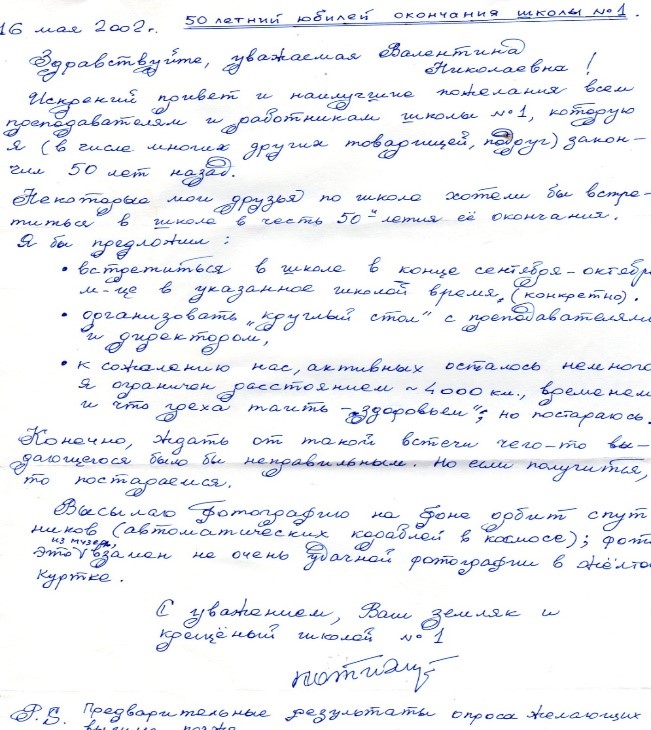 16 мая 2002г. 50 летний юбилей окончания школы №1.
Здравствуйте, уважаемая Валентина
Николаевна!
Искрений привет и наилучшие пожелания всем
преподавателям и работникам школы №1, которую
я (в числе многих других товарищей, подруг) закон-
чил 50 лет назад.
Некоторые мои друзья по школе хотели бы встре-
титься в школе в честь 50-летия её окончания.
Я бы предложил:
• встретиться в школе в конце сентября-октябре
м-це в указанное школой время, (конкретно).
• организовать „круглый стол" с преподавателями
и директором,
• к сожалению нас, активных осталось немного
я ограничен расстоянием ~4000 км., временем
и что греха таить - „здоровьем"; но постараюсь.
Конечно, ждать от такой встечи чего-то вы-
дающегося было бы неправильным. Но если получится,
то постараемся.
Высылаю фотографию на фоне орбит спут
ников (автоматических кораблей в космосе); фото
из музея,
это взамен не очень удачной фотографии в жёлто
куртке.
С уважением, Ваш земляк и
крещёный школой №1
P.S. Предварительные результаты опроса желающих